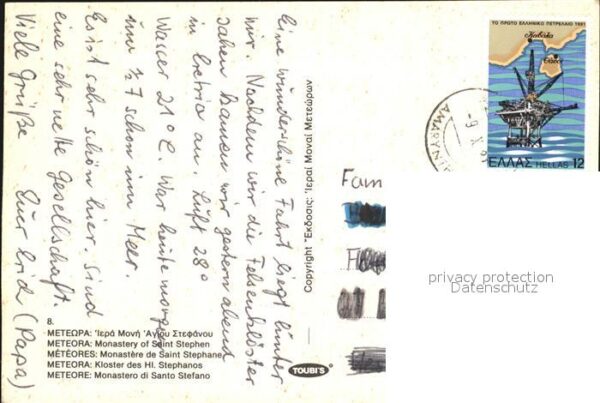 Eine wunderschöne Fahrt liegt hinter
mir. Nachdem wir die Felsenklöster
sahen kamen wir gestern abend
in Eretria an. Luft 28°
Wasser 21°C. War heute morgen
um 1/2 7 schon im Meer.
Es ist sehr schön hier. Sind
eine sehr nette Gesellschaft.
Viele Grüße Euer Erich (Papa)
8.
ΜΕΤΕΩΡΑ: Ἱερά Μονή Ἁγίου Στεφάνου
METEORA: Monastery of Saint Stephen
MÉTÉORES: Monastère de Saint Stephane
METEORA: Kloster des Hl. Stephanos
METEORE: Monastero di Santo Stefano
Copyright Ἔκδοσις: Ἱεραί Μοναί Μετεώρων
TOUBI'S
Fam
ΤΟ ΠΡΩΤΟ ΕΛΛΗΝΙΚΟ ΠΕΤΡΕΛΑΙΟ 1981
Kabála
Θάσος
ΕΛΛΑΣ HELLAS 12
ΑΜΑΡΥΝ
privacy protection
Datenschutz